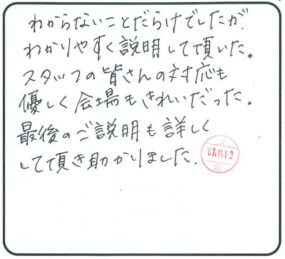 わからないことだらけでしたが
わかりやすく説明して頂いた。
スタッフの皆さんの対応も
優しく会場もきれいだった。
最後のご説明も詳しく
して頂き助かりました。